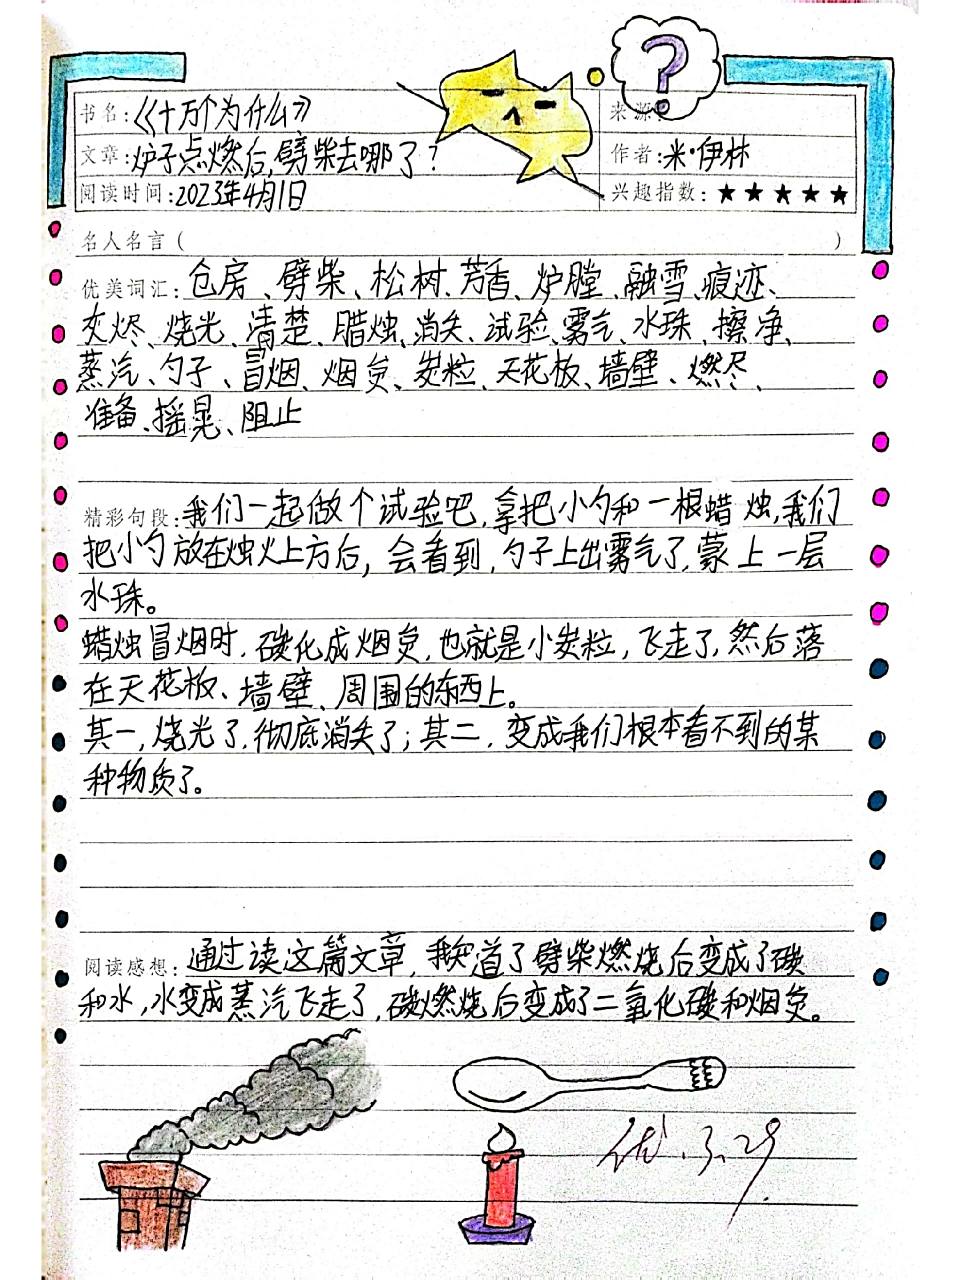 书名:《十万个为什么》 来源:
文章:炉子点燃后,劈柴去哪了? 作者:米·伊林
阅读时间:2023年4月1日 兴趣指数:★★★★★
名人名言( )
优美词汇:仓房、劈柴、松树、芳香、炉膛、融雪、痕迹、
灰烬、烧光、清楚、腊烛、消失、试验、雾气、水珠、擦净、
蒸汽、勺子、冒烟、烟炱、炭粒、天花板、墙壁、燃尽、
准备、摇晃、阻止
精彩句段:我们一起做个试验吧,拿把小勺和一根蜡烛,我们
把小勺放在烛火上方后,会看到,勺子上出雾气了,蒙上一层
水珠。
蜡烛冒烟时,碳化成烟炱,也就是小炭粒,飞走了,然后落
在天花板、墙壁、周围的东西上。
其一,烧光了,彻底消失了;其二,变成我们根本看不到的某
种物质了。
阅读感想:通过读这篇文章,我知道了劈柴燃烧后变成了碳
和水,水变成蒸汽飞走了,碳燃烧后变成了二氧化碳和烟炱。
优.3.29